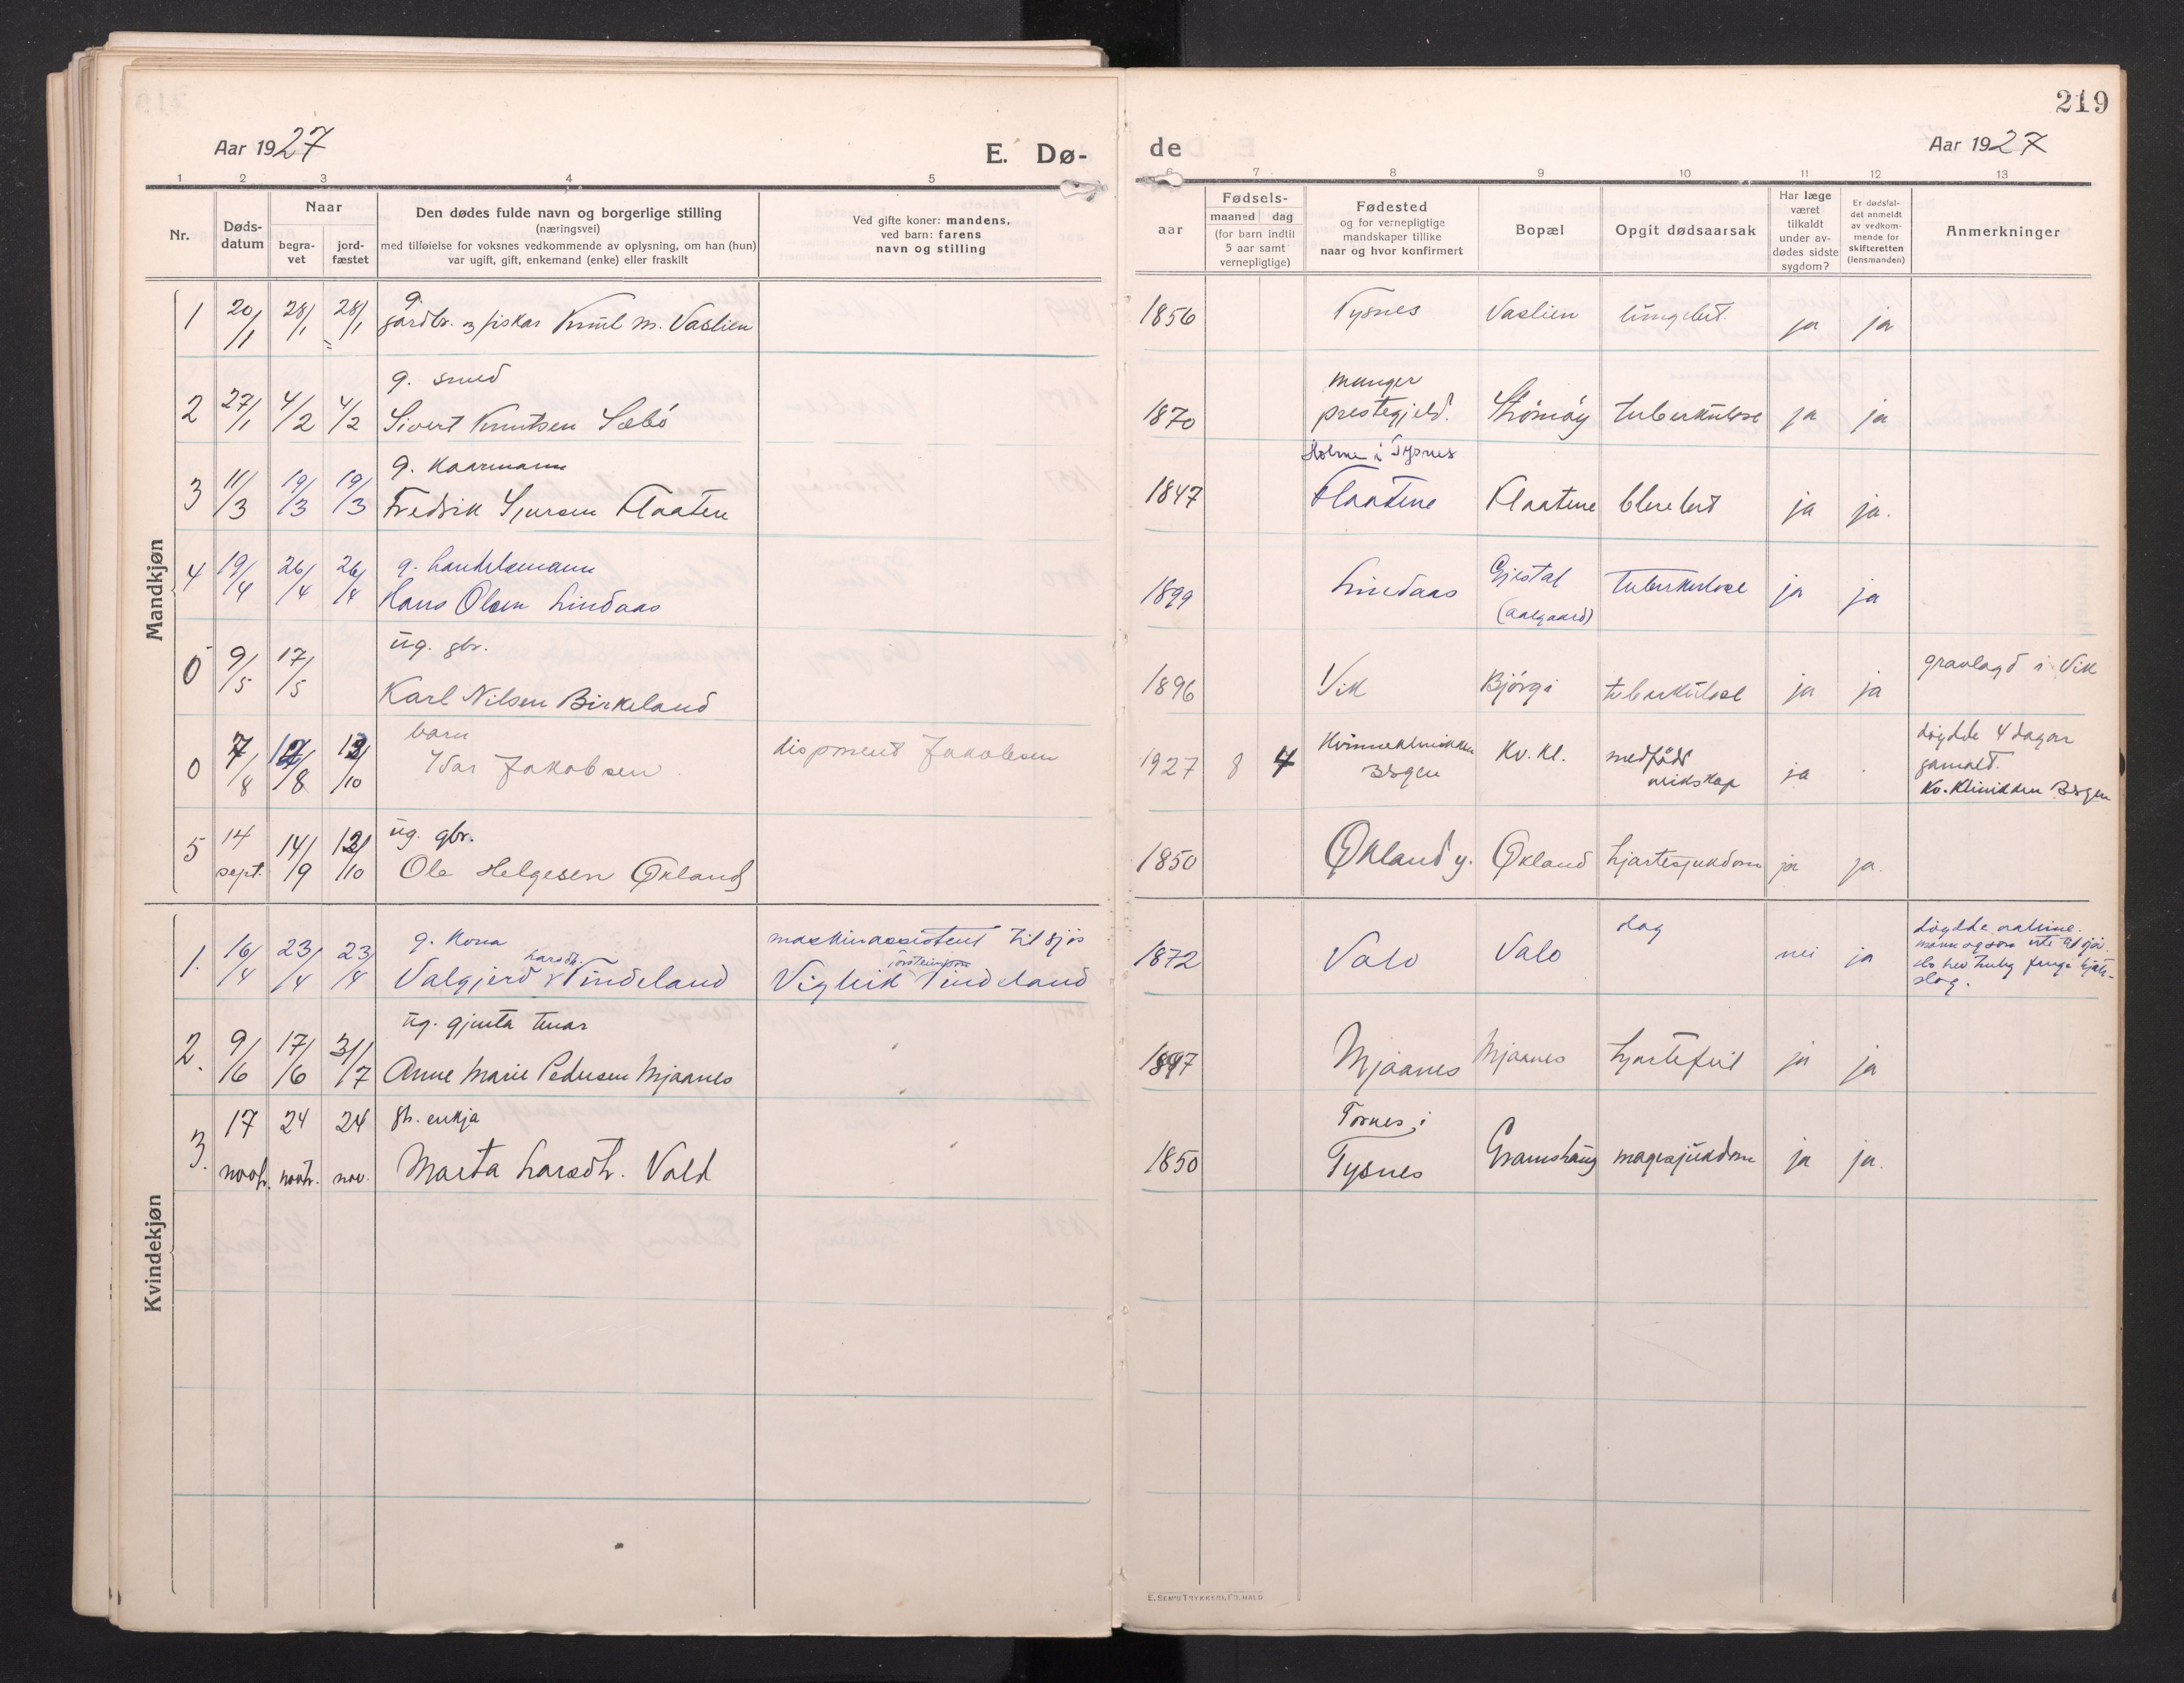 219
Aar 1927
E. Dø-
de
Aar 1927
1 2 3 4 5
6 7 8 9 10 11 12 13
Nr.
Døds-
datum
Naar
begra-
vet
jord-
fæstet
Den dødes fulde navn og borgerlige stilling
(næringsvei)
med tilføielse for voksnes vedkommende av oplysning, om han (hun)
var ugift, gift, enkemand (enke) eller fraskilt
Ved gifte koner: mandens,
ved barn: farens
navn og stilling
aar
Fødsels-
maaned dag
(for barn indtil
5 aar samt
vernepligtige)
Fødested
og for vernepligtige
mandskaper tillike
naar og hvor konfirmert
Bopæl
Opgit dødsaarsak
Har læge
været
tilkaldt
under av-
dødes sidste
sygdom?
Er dødsfal-
det anmeldt
av vedkom-
mende for
skifteretten
(lensmanden)
Anmerkninger
Mandkjøn
g.
1 20/1 28/1 28/1 gardbr. og fiskar Knut M. Vaslien 1856 Tysnes Vaslien lungebet. ja ja
g. smed munger
2 27/1 4/2 4/2 Sivert Knutsen Sæbö 1870 prestegjeld. Strömöy tuberkulose ja ja
g. kaarmann Holme i Tysnes
3 11/3 19/3 19/3 Fredrik Sjursen Flaaten 1847 Flaatene Flaatene ja ja.
g. handelsmann Gjestal
4 19/4 26/4 26/4 Hans Olsen Lindaas 1899 Lindaas (aalgaard) tuberkulose ja ja
ug. gbr. gravlagd i Vik
0 9/5 17/5 Karl Nilsen Birkeland 1896 Vik Björgi tuberkulose ja ja
barn Kvinneklinikken döydde 4 dagar
0 7/8 12/8 12/10 Ivar Jakobsen. disponent Jakobsen 1927 8 4 Brgen Kv. Kl. medfödt veikskap ja gamalt.
Kv. Klinikken Brgen
ug. gbr.
5 14 sept. 14/9 12/10 Ole Helgesen Økland 1850 Økland y. Økland hjartesjukdom ja ja.
Kvindekjøn
g. kona maskinassistent til sjøs
larsdt.
1. 16/4 23/4 23/4 Valgjerd Vindeland Vigleik Vindeland 1872 Valo Valo slag nei ja
döydde
mann
slag.
ug. gjenta
2. 9/6 17/6 3/7 Anne Marie Pedersen Mjaanes 1897 Mjaanes Mjaanes hjartefeil ja ja
gb. enkja Tornes i
3. 17 novbr. 24 novbr. 24 nov. Marta Larsdtr. Vald 1850 Tysnes Gramshaug magesjukdom ja ja.
E. SEM'S TRYKKERI, FR.HALD